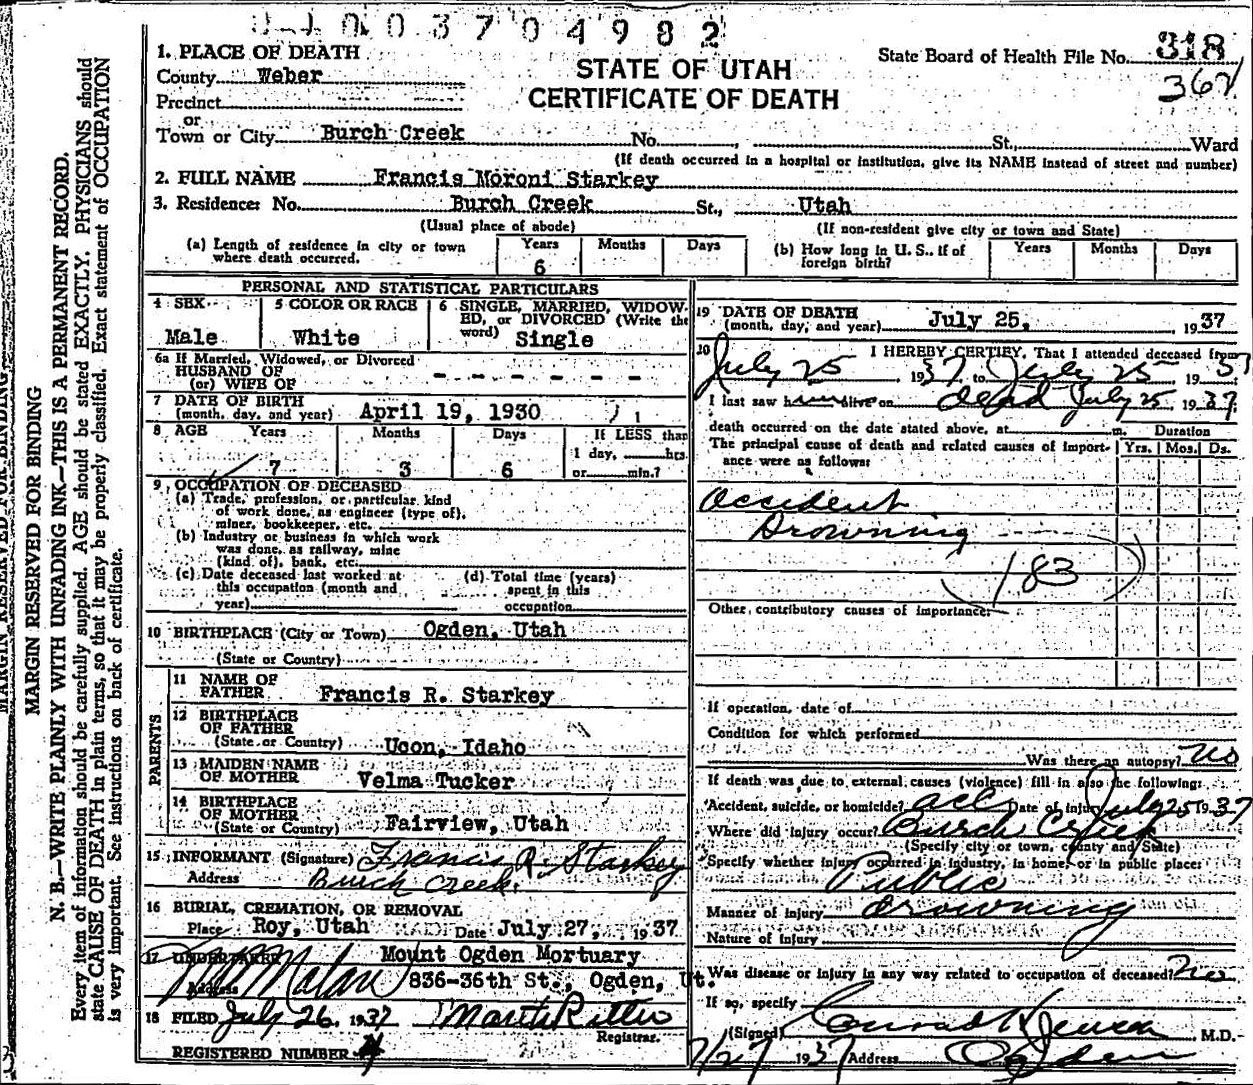 0037 04982
1. PLACE OF DEATH
County Weber
Precinct
or
Town or City Burch Creek No. , St., Ward
STATE OF UTAH
CERTIFICATE OF DEATH
State Board of Health File No. 318
(If death occurred in a hospital or institution, give its NAME instead of street and number)
2. FULL NAME Francis Moroni Starkey
3. Residence: No. Burch Creek St., Utah
(Usual place of abode) (If non-resident give city or town and State)
(a) Length of residence in city or town where death occurred. Years 6 Months Days
(b) How long in U. S., if of foreign birth? Years Months Days
PERSONAL AND STATISTICAL PARTICULARS
4 SEX Male
5 COLOR OR RACE White
6 SINGLE, MARRIED, WIDOW-
ED, or DIVORCED (Write the
word) Single
6a If Married, Widowed, or Divorced
HUSBAND OF
(or) WIFE OF - - - - - - -
7 DATE OF BIRTH
(month, day, and year) April 19, 1930
8 AGE Years 7 Months 3 Days 6
If LESS than
1 day, hrs.
or min.?
9 OCCUPATION OF DECEASED
(a) Trade, profession, or particular kind
of work done, as engineer (type of),
miner, bookkeeper, etc.
(b) Industry or business in which work
was done, as railway, mine
(kind of), bank, etc.
(c) Date deceased last worked at
this occupation (month and
year)
(d) Total time (years)
spent in this
occupation
10 BIRTHPLACE (City or Town) Ogden, Utah
(State or Country)
PARENTS
11 NAME OF
FATHER Francis R. Starkey
12 BIRTHPLACE
OF FATHER
(State or Country) Ucon, Idaho
13 MAIDEN NAME
OF MOTHER Velma Tucker
14 BIRTHPLACE
OF MOTHER
(State or Country) Fairview, Utah
15 INFORMANT (Signature) Francis R. Starkey
Address Burch Creek.
16 BURIAL, CREMATION, OR REMOVAL
Place Roy, Utah Date July 27, 1937
17 UNDERTAKER Mount Ogden Mortuary
Address 836-36th St., Ogden, Ut.
18 FILED July 26, 1937
Registrar.
REGISTERED NUMBER
19 DATE OF DEATH
(month, day, and year) July 25, 1937
20 I HEREBY CERTIFY, That I attended deceased from
July 25 1937 to July 25 1937
I last saw h alive on dead July 25 1937
death occurred on the date stated above, at m. Duration
The principal cause of death and related causes of import-
ance were as follows: Yrs. Mos. Ds.
Accident
Drowning
183
Other contributory causes of importance:
If operation, date of
Condition for which performed
Was there an autopsy? No
If death was due to external causes (violence) fill in also the following:
Accident, suicide, or homicide? acc Date of injury July 25 1937
Where did injury occur? Burch Creek
(Specify city or town, county and State)
Specify whether injury occurred in industry, in home, or in public place:
Public
Manner of injury drowning
Nature of injury
Was disease or injury in any way related to occupation of deceased? No
If so, specify
(Signed) Conrad H Jensen M.D.
7/27 1937 Address Ogden
MARGIN RESERVED FOR BINDING
N. B.—WRITE PLAINLY WITH UNFADING INK—THIS IS A PERMANENT RECORD.
Every item of information should be carefully supplied. AGE should be stated EXACTLY. PHYSICIANS should
state CAUSE OF DEATH in plain terms, so that it may be properly classified. Exact statement of OCCUPATION
is very important. See instructions on back of certificate.